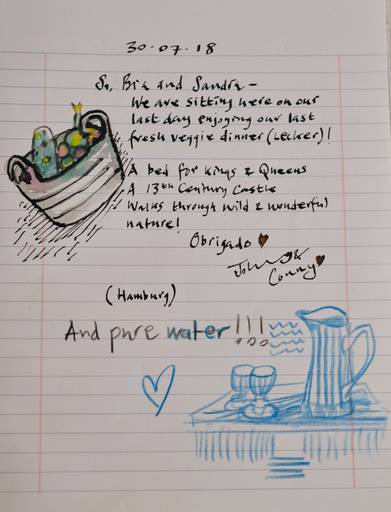 30.07.18
So, Bia and Sandra –
We are sitting here on our
last day enjoying our last
fresh veggie dinner (Lecker)!
A bed for Kings & Queens
A 13th Century Castle
Walks through wild & wonderful
nature!
Obrigado
John &
Conny
(Hamburg)
And pure water!!!